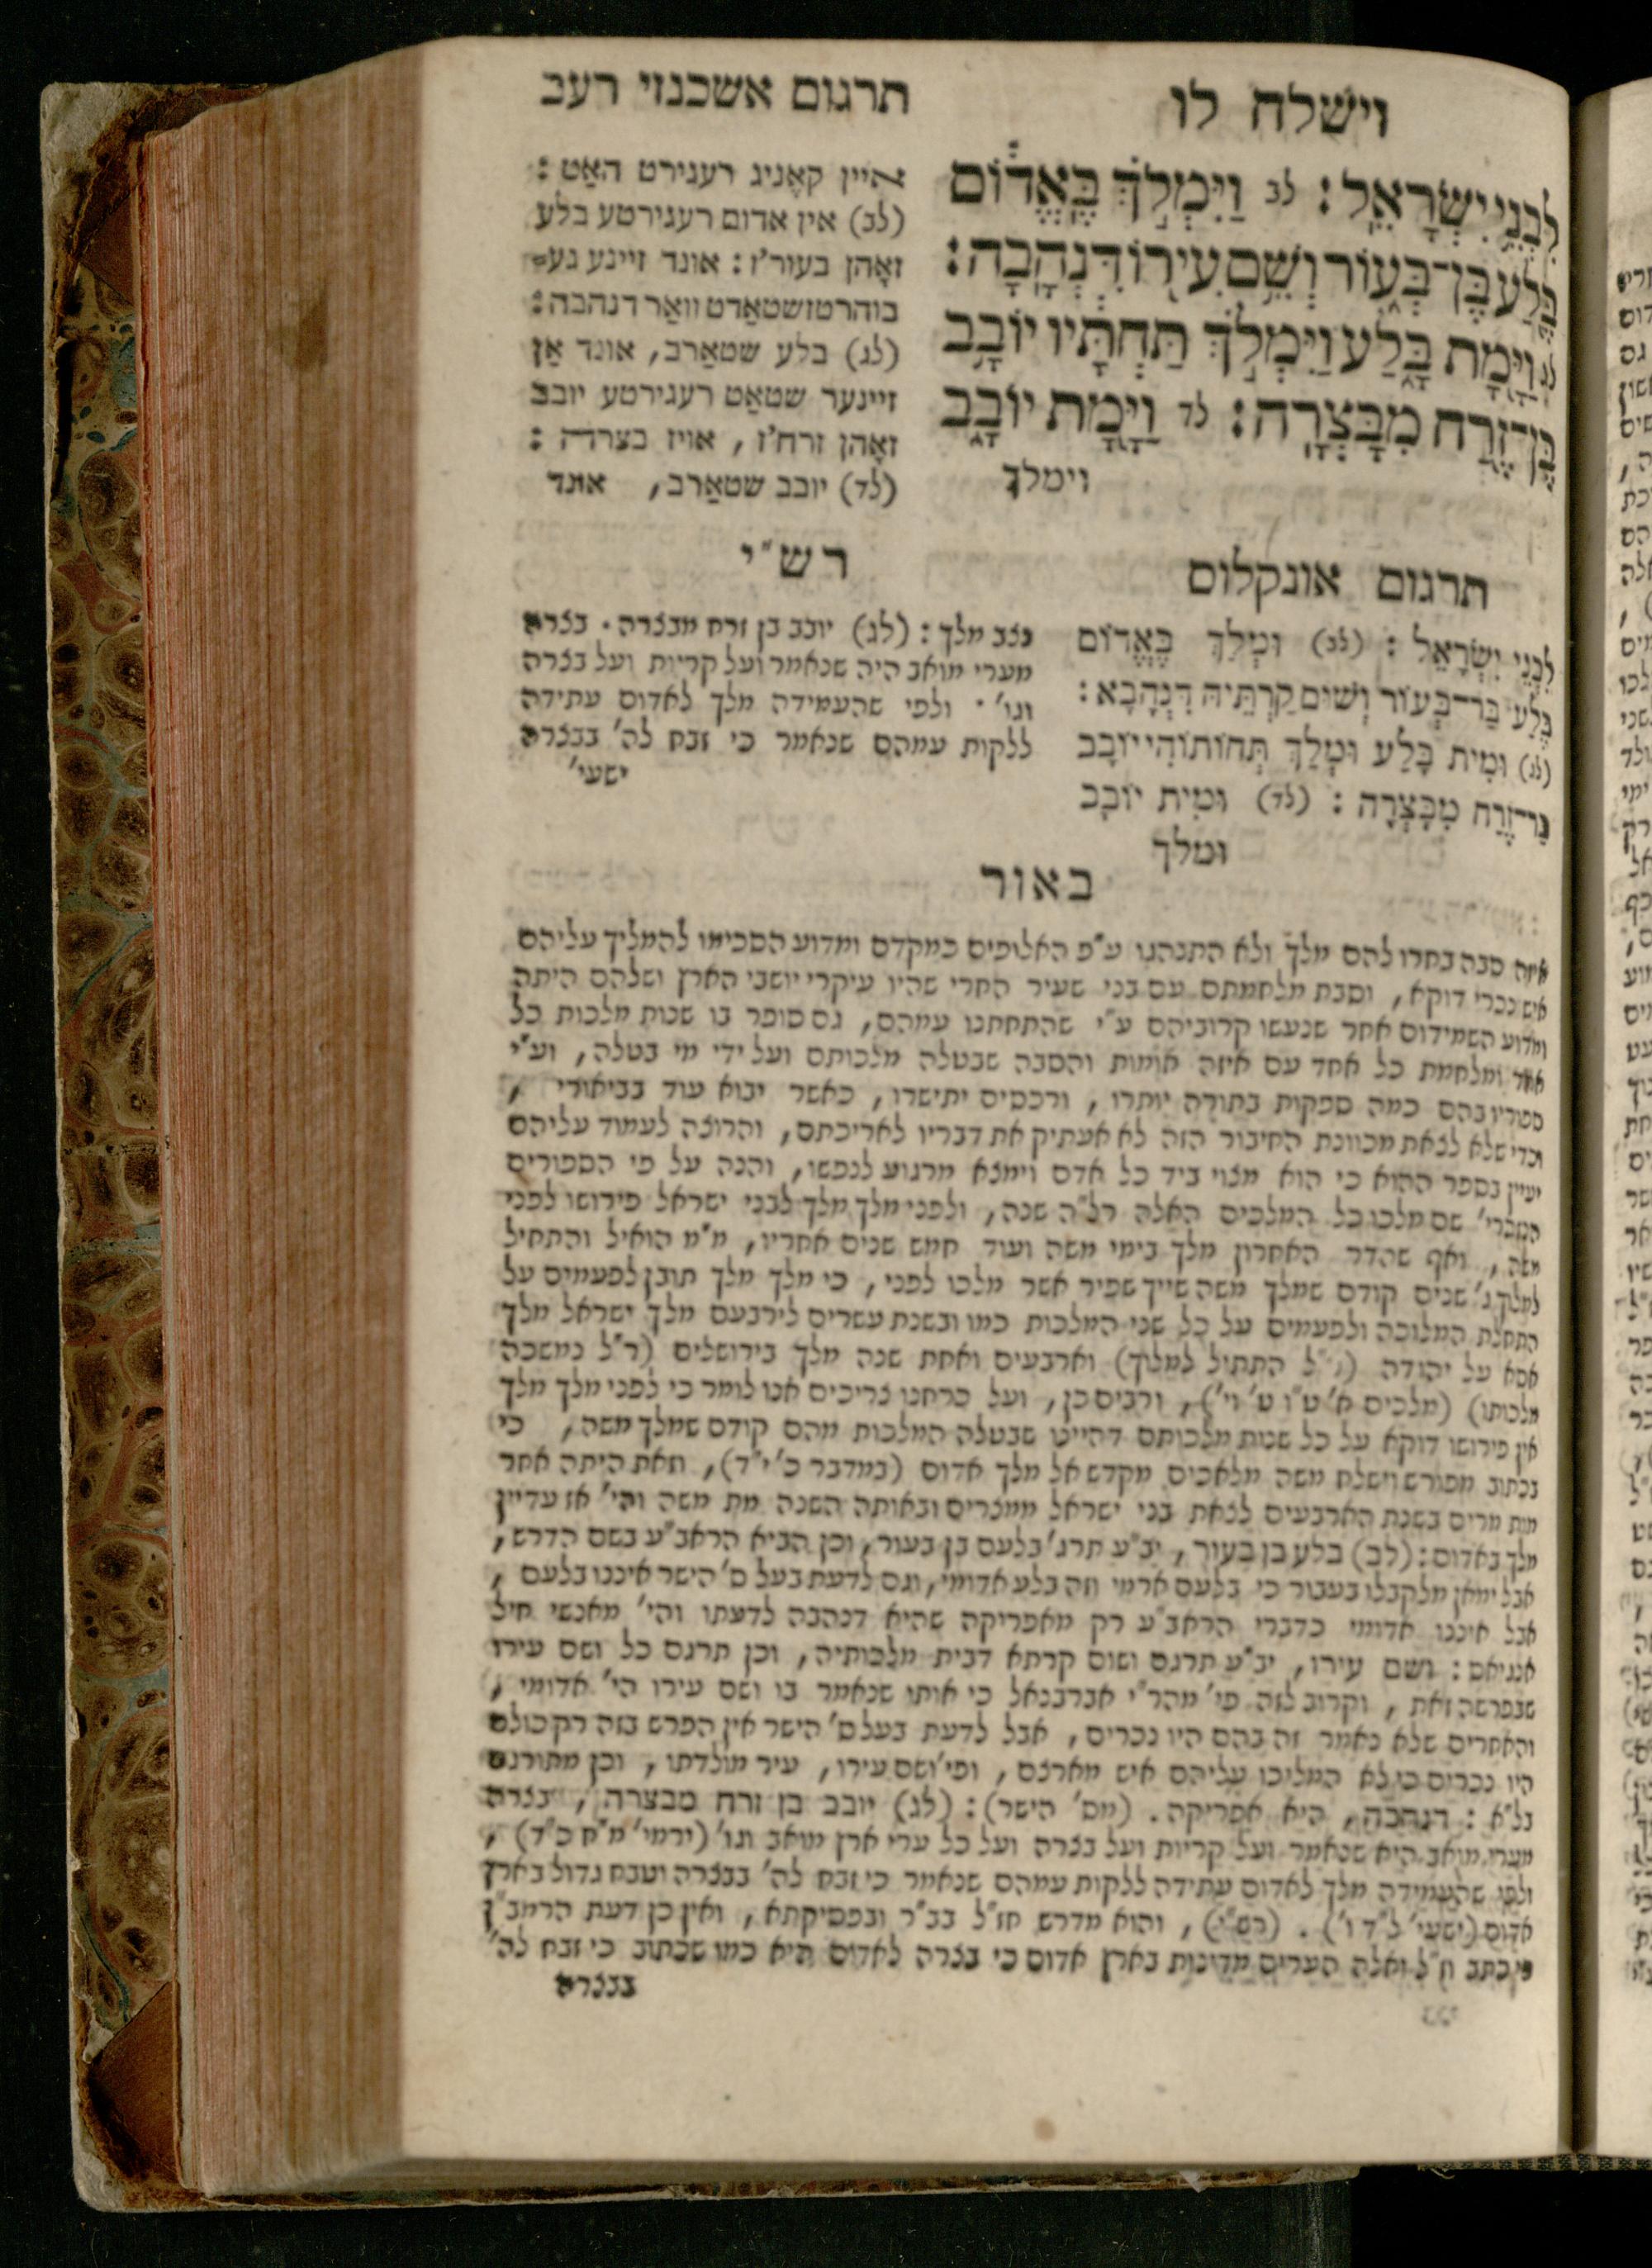 וישלח לו
תרגום אשכנזי רעב
לִבְנֵי יִשְׂרָאֵל׃ לב וַיִּמְלֹךְ בֶּאֱדוֹם
בֶּלַע בֶּן־בְּעוֹר וְשֵׁם עִירוֹ דִּנְהָבָה׃
לג וַיָּמָת בָּלַע וַיִּמְלֹךְ תַּחְתָּיו יוֹבָב
בֶּן־זֶרַח מִבָּצְרָה׃ לד וַיָּמָת יוֹבָב
וימלך
איין קאֶניג רעגירט האַט :
(לב) אין אדום רעגירטע בלע
זאָהן בעור'ז : אונד זיינע גע=
בוהרטזשטאַדט וואַר דנהבה :
(לג) בלע שטאַרב, אונד אַן
זיינער שטאַט רעגירטע יובב
זאָהן זרח'ז, אויז בצרה :
(לד) יובב שטאַרב, אונד
תרגום אונקלוס
לִבְנֵי יִשְׂרָאֵל : (לב) וּמְלַךְ בֶּאֱדוֹם
בֶּלַע בַּר־בְּעוֹר וְשׁוּם קַרְתֵּיהּ דִּנְהָבָא :
(לג) וּמִית בֶּלַע וּמְלַךְ תְּחוֹתוֹהִי יוֹבָב
בַּר־זֶרַח מִבָּצְרָה : (לד) וּמִית יוֹבָב
ומלך
רש"י
נצב מלך : (לג) יובב בן זרח מבצרה. בצרה
מערי מואב היה שנאמר ועל קריות ועל בצרה
וגו'. ולפי שהעמידה מלך לאדום עתידה
ללקות עמהם שנאמר כי זבח לה' בבצרה
ישעי'
באור
איזה סבה בחרו להם מלך ולא התנהגו ע"פ האלופים כמקדם ומדוע הסכימו להמליך עליהם
איש נכרי דוקא, וסבת מלחמתם עם בני שעיר החרי שהיו עיקרי יושבי הארץ ושלהם היתה
ומדוע השמידום אחר שנעשו קרוביהם ע"י שהתחתנו עמהם, גם סופר בו שנות מלכות כל
אחד ומלחמת כל אחד עם איזה אומות והסבה שבטלה מלכותם ועל ידי מי בטלה, וע"י
ספוריו בהם כמה ספקות בתורה יותרו, ורכסים יתישרו, כאשר יבוא עוד בביאורי,
וכדי שלא לצאת מכוונת החיבור הזה לא אעתיק את דבריו לאריכתם, והרוצה לעמוד עליהם
יעיין בספר ההוא כי הוא מצוי ביד כל אדם וימצא מרגוע לנפשו, והנה על פי הספורים
הנזכרי' שם מלכו כל המלכים האלה רל"ה שנה, ולפני מלך מלך לבני ישראל פירושו לפני
משה, ואף שהדר האחרון מלך בימי משה ועוד חמש שנים אחריו, מ"מ הואיל והתחיל
למלוך ג' שנים קודם שמלך משה שייך שפיר אשר מלכו לפני, כי מלך מלך תובן לפעמים על
התחלת המלוכה ולפעמים על כל שני המלכות כמו ובשנת עשרים לירבעם מלך ישראל מלך
אסא על יהודה (ר"ל התחיל למלוך) וארבעים ואחת שנה מלך בירושלים (ר"ל נמשכה
מלכותו) (מלכים א' ט"ו ט' וי'), ורבים כן, ועל כרחנו צריכים אנו לומר כי לפני מלך מלך
אין פירושו דוקא על כל שנות מלכותם דהיינו שבטלה המלכות מהם קודם שמלך משה, כי
בכתוב מפורש וישלח משה מלאכים מקדש אל מלך אדום (במדבר כ' י"ד), וזאת היתה אחר
מות מרים בשנת הארבעים לצאת בני ישראל ממצרים ובאותה השנה מת משה והי' אז עדיין
מלך באדום : (לב) בלע בן בעור, יב"ע תרג' בלעם בן בעור, וכן הביא הראב"ע בשם הדרש,
אבל ימאן מלקבלו בעבור כי בלעם ארמי וזה בלע אדומי, וגם לדעת בעל ס' הישר איננו בלעם,
אבל איננו אדומי כדברי הראב"ע רק מאפריקה שהיא דנהבה לדעתו והי' מאנשי חיל
אנגיאס : ושם עירו, יב"ע תרגם ושום קרתא דבית מלכותיה, וכן תרגם כל ושם עירו
שבפרשה זאת, וקרוב לזה פי' מהר"י אברבנאל כי אותו שנאמר בו ושם עירו הי' אדומי,
והאחרים שלא נאמר זה בהם היו נכרים, אבל לדעת בעל ס' הישר אין הפרש בזה רק כולם
היו נכרים כי לא המליכו עליהם איש מארצם, ופי' ושם עירו, עיר מולדתו, וכן מתורגם
בל"א : דנהבה, היא אפריקה. (מס' הישר) : (לג) יובב בן זרח מבצרה, בצרה
מערי מואב היא שנאמר ועל קריות ועל בצרה ועל כל ערי ארץ מואב וגו' (ירמי' מ"ח כ"ד),
ולפי שהעמידה מלך לאדום עתידה ללקות עמהם שנאמר כי זבח לה' בבצרה וטבח גדול בארץ
אדום (ישעי' ל"ד ו'). (רש"י), והוא מדרש חז"ל בב"ר ובפסיקתא, ואין כן דעת הרמב"ן
כתב וז"ל ואלה הערים מדינות בארץ אדום כי בצרה לאדום היא כמו שכתוב כי זבח לה'
בבצרה